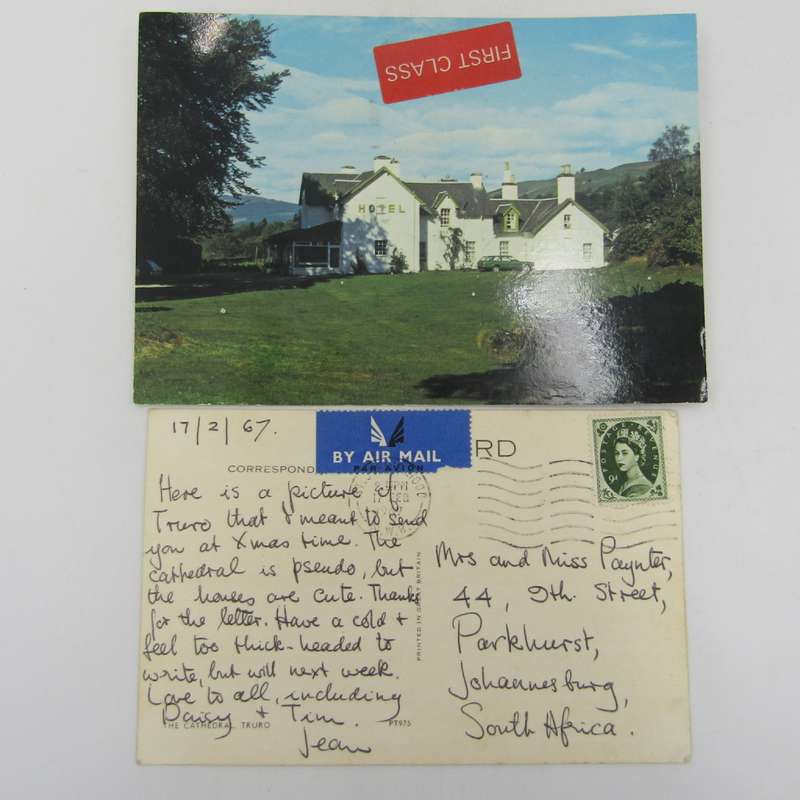 FIRST CLASS
HOTEL
17/2/67.
BY AIR MAIL
PAR AVION
RD
CORRESPOND
POSTAGE REVENUE
9D
PM
17 FEB
Here is a picture of
Truro that I meant to send
you at Xmas time. The
cathedral is pseudo, but
the houses are cute. Thanks
for the letter. Have a cold +
feel too thick-headed to
write, but will next week.
Love to all, including
Daisy + Tim.
Jean
THE CATHEDRAL TRURO
PT975
PRINTED IN GREAT BRITAIN
Mrs and Miss Paynter,
44, 9th. Street,
Parkhurst,
Johannesburg,
South Africa.